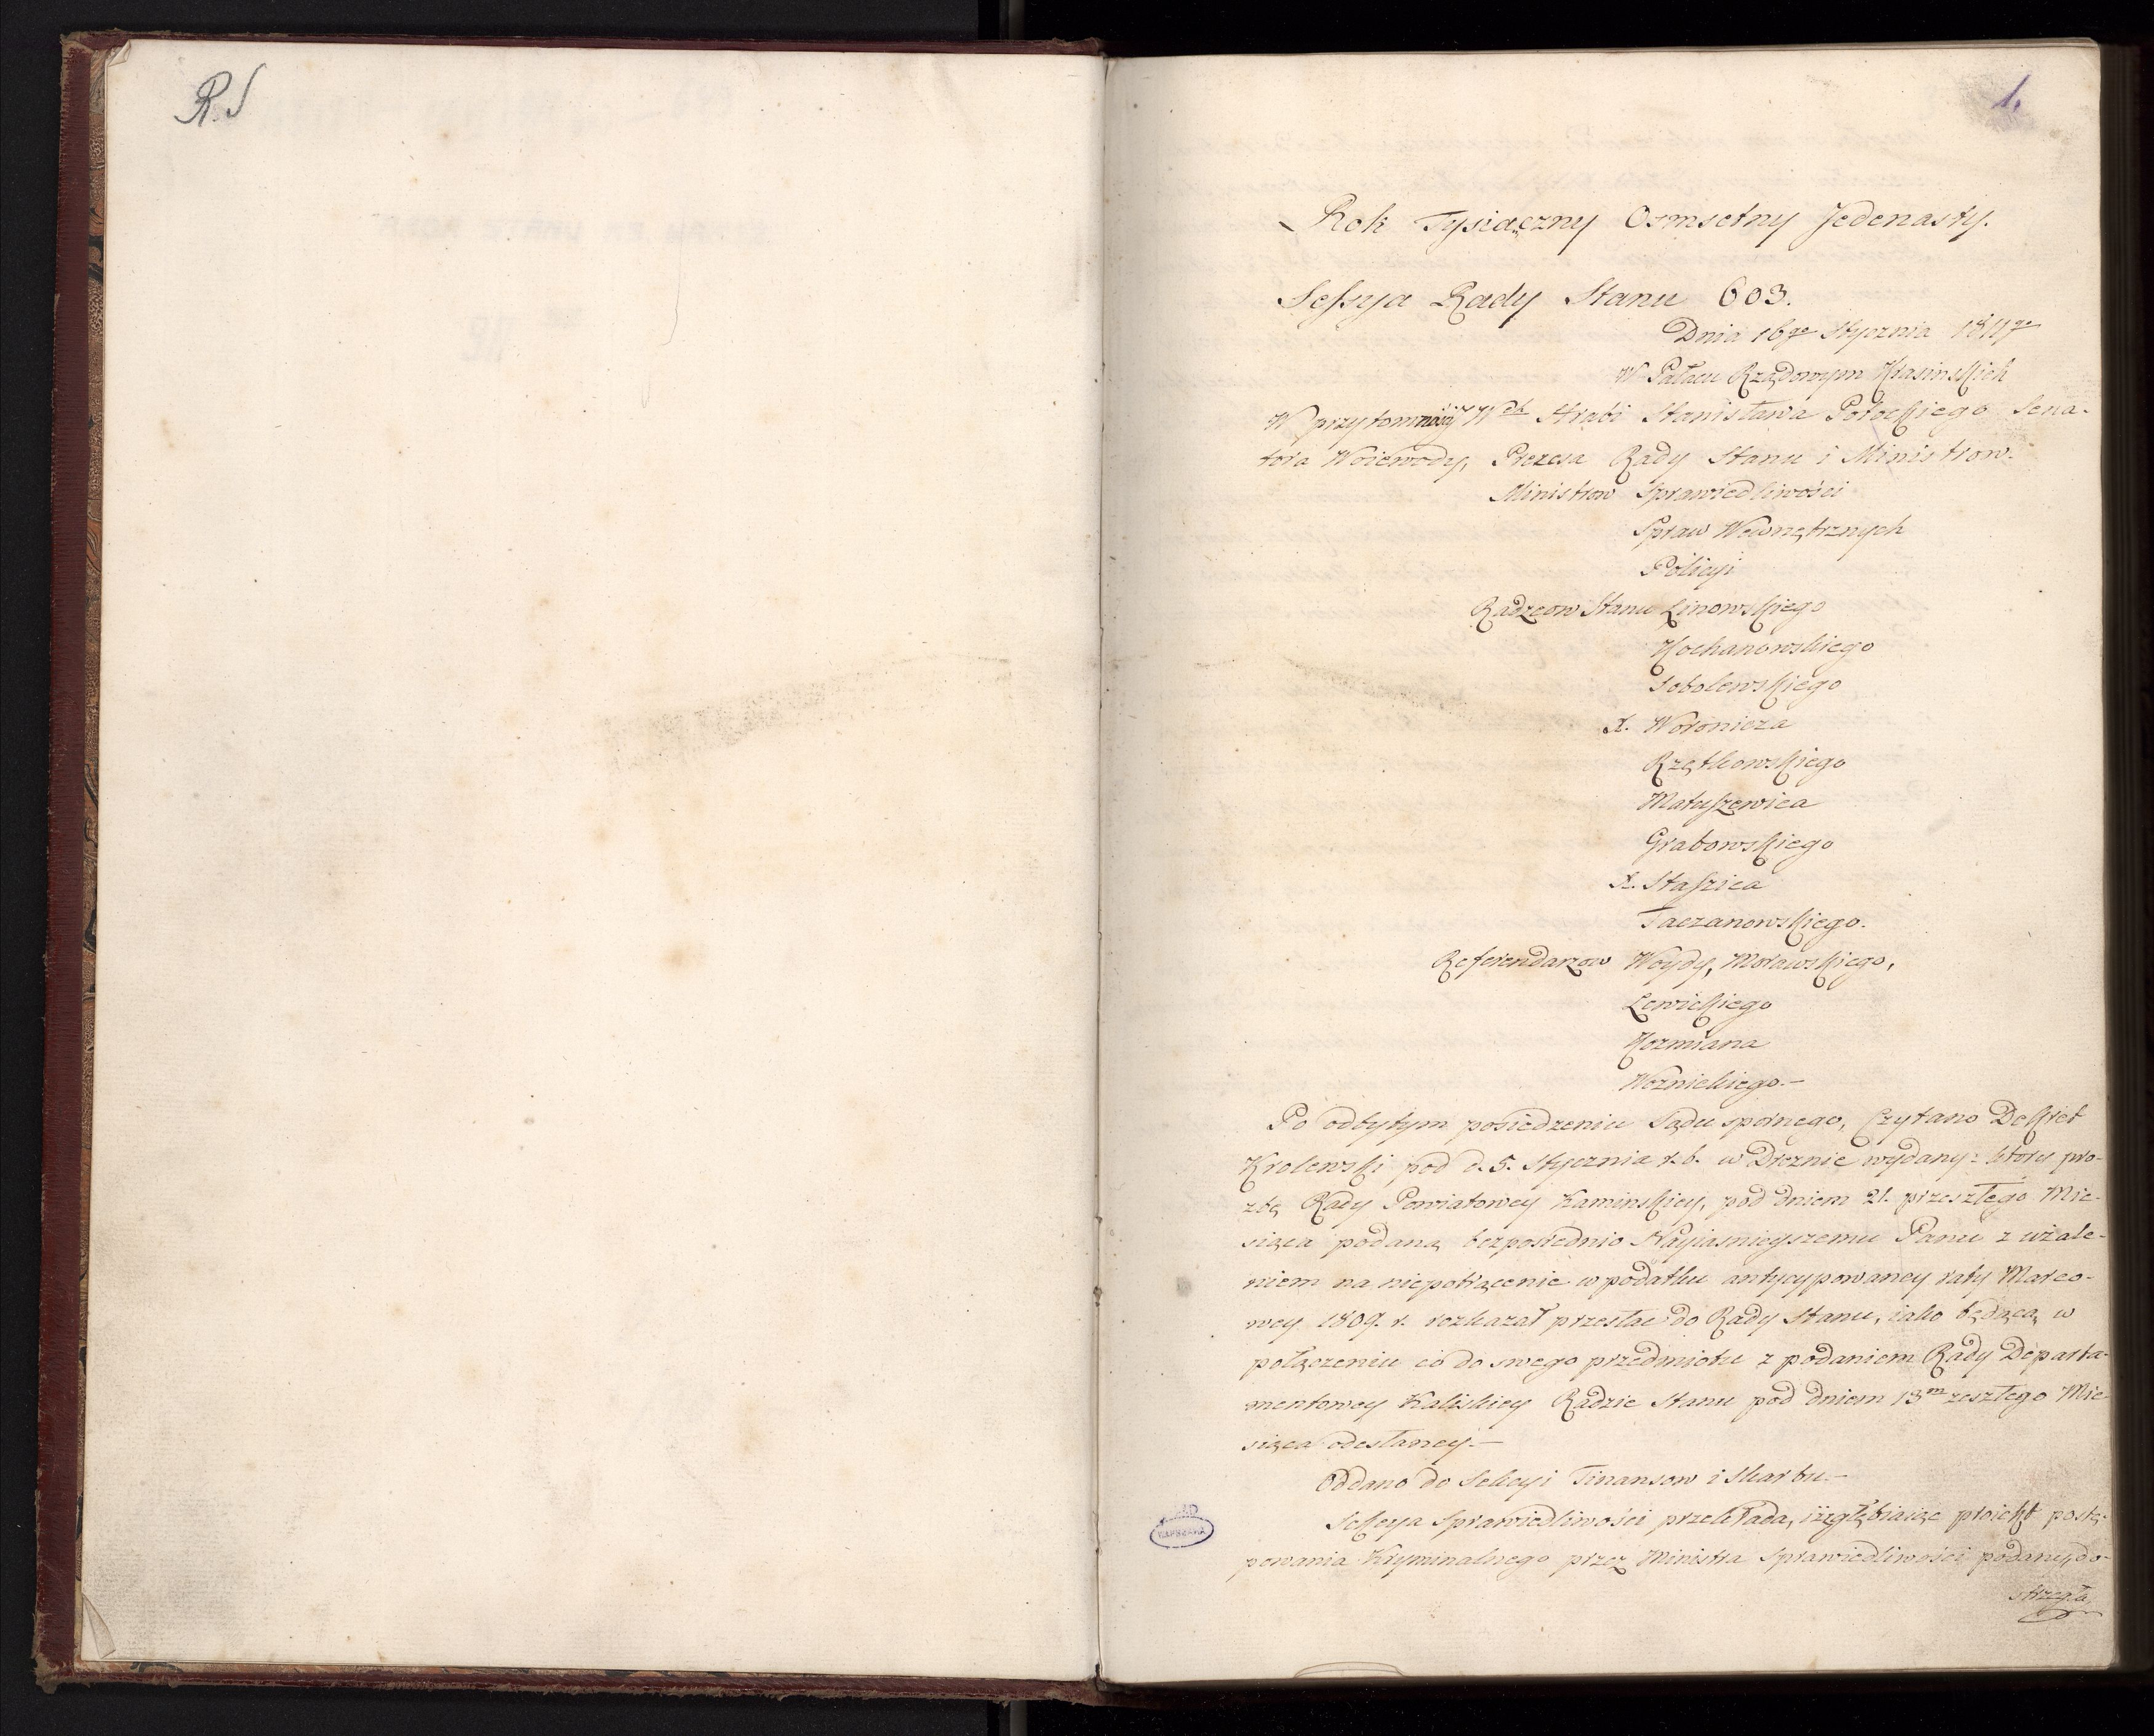 R.S
1.
Rok Tysiączny Osmsetny Jedenasty.
Sessya Rady Stanu 603.
Dnia 16go Stycznia 1811go
W Pałacu Rządowym Krasinskich
W przytomności JWch Hrabi Stanisława Potockiego Sena-
tora Woiewody, Prezesa Rady Stanu i Ministrow.
Ministrow Sprawiedliwości
Spraw Wewnętrznych
Policyi
Radzcow Stanu Linowskiego
Kochanowskiego
Sobolewskiego
X. Woronicza
Rzętkowskiego
Matuszewica
Grabowskiego
X. Staszica
Taczanowskiego.
Referendarzow Woydy, Morawskiego,
Lewickiego
Kozmiana
Woznickiego.—
Po odbytym posiedzeniu Sądu spornego, Czytano Dekret
Krolewski pod d. 5. Stycznia r.b. w Dreznie wydany: ktory pro-
zbę Rady Powiatowey Kaminskiey, pod dniem 21. przeszłego Mie-
siąca podaną bezposrednio Nayiasnieyszemu Panu z użale-
niem na niepotrącenie w podatku antycypowaney raty Marco-
wey 1809. r. rozkazał przesłac do Rady Stanu, iako będącą w
połączeniu co do swego przedmiotu z podaniem Rady Departa-
mentowey Kaliskiey Radzie Stanu pod dniem 13m zeszłego Mie
siąca odesłaney.—
Oddano do Sekcyi Finansow i Skarbu.—
Sekcya Sprawiedliwości przekłada, iż zgłębiaiąc proiekt postę-
powania Kryminalnego przez Ministra Sprawiedliwości podany, do-
strzegła,
WARSZAWA